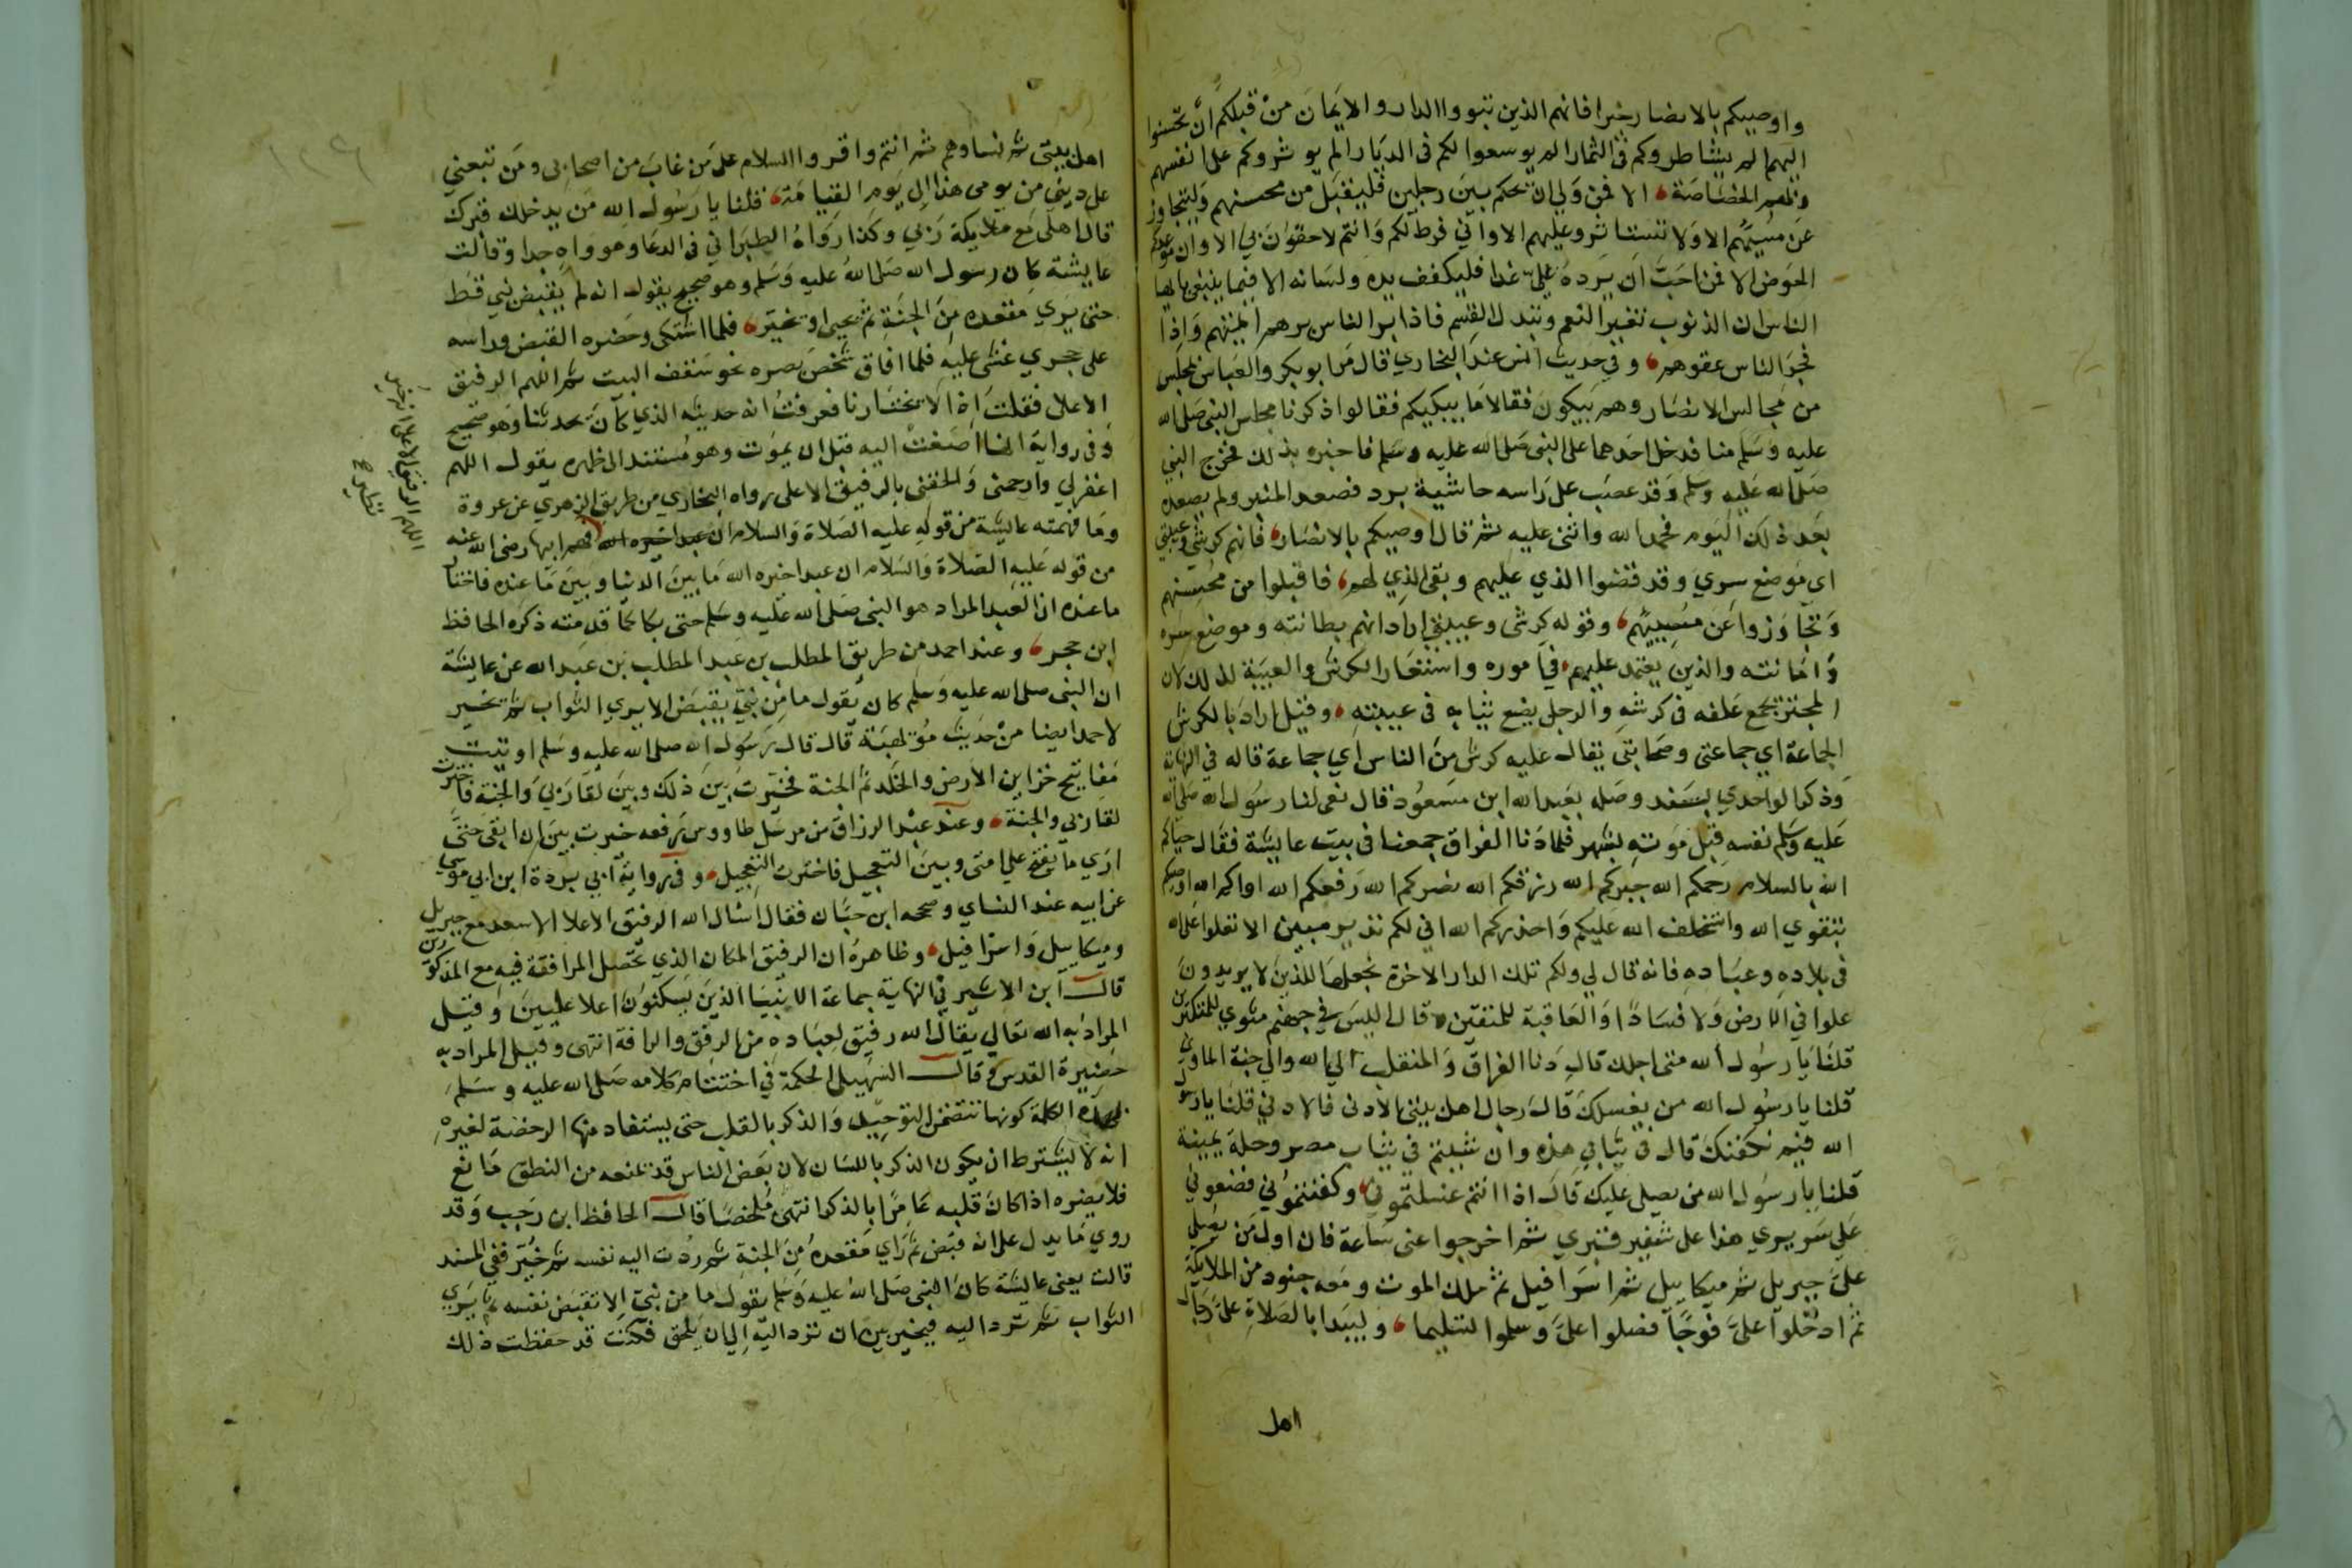 واوصيكم بالانصار خيرا فانهم الذين تبووا الدار والايمان من قبلكم ان تحسنوا
اليهم الم يشاطروكم في الثمار الم يوسعوا لكم في الديار الم يوثروكم على انفسهم
وبهم الخصاصة الا فمن ولي ان يحكم بين رجلين فليقبل من محسنهم وليتجاوز
عن مسيئهم الا ولا تستاثروا عليهم الا واني فرط لكم وانتم لاحقون بي الا وان موعدكم
الحوض الا فمن احب ان يرده علي غدا فليكفف يده ولسانه الا فيما ينبغي يا ايها
الناس ان الذنوب تغير النعم وتبدل القسم فاذا بر الناس برهم ايمتهم واذا
فجر الناس عقوهم وفي حديث انس عند البخاري قال مر ابو بكر والعباس بمجلس
من مجالس الانصار وهم يبكون فقالا ما يبكيكم فقالوا ذكرنا مجلس النبي صلى الله
عليه وسلم منا فدخل احدهما على النبي صلى الله عليه وسلم فاخبره بذلك فخرج النبي
صلى الله عليه وسلم وقد عصب على راسه حاشية برد فصعد المنبر ولم يصعده
بعد ذلك اليوم فحمد الله واثنى عليه ثم قال اوصيكم بالانصار فانهم كرشي وعيبتي
اي موضع سري وقد قضوا الذي عليهم وبقى الذي لهم فاقبلوا من محسنهم
وتجاوزوا عن مسيئهم وقوله كرشي وعيبتي اراد انهم بطانته وموضع سره
وامانته والذين يعتمد عليهم في اموره واستعار الكرش والعيبة لذلك لان
المجتر يجمع علفه في كرشه والرجل يضع ثيابه في عيبته وقيل اراد بالكرش
الجماعة اي جماعتي وصحابتي يقال عليه كرش من الناس اي جماعة قاله في النهاية
وذكر الواحدي بسند وصله بعبد الله ابن مسعود قال نعى لنا رسول الله صلى الله
عليه وسلم نفسه قبل موته بشهر فلما دنا الفراق جمعنا في بيت عايشة فقال حياكم
الله بالسلام رحمكم الله جبركم الله رزقكم الله نصركم الله رفعكم الله اواكم الله اوصيكم
بتقوي الله واستخلف الله عليكم واحذركم الله اني لكم نذير مبين الا تعلوا على الله
في بلاده وعباده فانه قال لي ولكم تلك الدار الاخرة نجعلها للذين لا يريدون
علوا في الارض ولا فسادا والعاقبة للمتقين وقال اليس في جهنم مثوي للمتكبرين
قلنا يا رسول الله متى اجلك قال دنا الفراق والمنقلب الي الله والي جنة الماوي
قلنا يا رسول الله من يغسلك قال رجال اهل بيتي الادنى فالادني قلنا يا رسول
الله فيم نكفنك قال في ثيابي هذه وان شيتم في ثياب مصر وحلة يمنية
قلنا يا رسول الله من يصلي عليك قال اذا انتم غسلتموني وكفنتموني فضعوني
على سريري هذا على شفير قبري ثم اخرجوا عني ساعة فان اول من يصلي
علي جبريل ثم ميكاييل ثم اسرافيل ثم ملك الموت ومعه جنود من الملايكة
ثم ادخلوا علي فوجا فصلوا علي وسلموا تسليما وليبدا بالصلاة علي رجال
اهل
اهل بيتي ثم نساوهم ثم انتم واقروا السلام على من غاب من اصحابي ومن تبعني
على ديني من يومي هذا الي يوم القيامة قلنا يا رسول الله من يدخلك قبرك
قال اهلي مع ملايكة ربي وكذا رواه الطبراني في الدعا وهو واه جدا وقالت
عايشة كان رسول الله صلى الله عليه وسلم وهو صحيح يقول انه لم يقبض نبي قط
حتى يري مقعده من الجنة ثم يحيى او يخير فلما اشتكى وحضره القبض وراسه
على حجري غشي عليه فلما افاق شخص بصره نحو سقف البيت ثم اللهم الرفيق
الاعلى فقلت اذا لا يختارنا فعرفت انه حديثه الذي كان يحدثنا وهو صحيح
وفي رواية انها اصغت اليه قبل ان يموت وهو مستند الى ظهره يقول اللهم
اغفر لي وارحمني والحقني بالرفيق الاعلى رواه البخاري من طريق الزهري عن عروة
وما فهمته عايشة من قوله عليه الصلاة والسلام ابيها رضى الله عنه
من قوله عليه الصلاة والسلام ان عبدا خيره الله ما بين الدنيا وبين ما عنده فاختار
ما عنده ان العبد المراد هو النبي صلى الله عليه وسلم حتى بكا كما قدمته ذكره الحافظ
ابن حجر وعند احمد من طريق المطلب بن عبد المطلب بن عبد الله عن عايشة
ان النبي صلى الله عليه وسلم كان يقول ما من نبي يقبض الا يري الثواب ثم يخير
لاحمد ايضا من حديث مويهبة قال قال رسول الله صلى الله عليه وسلم اوتيت
مفاتيح خزاين الارض والخلد ثم الجنة فخيرت بين ذلك وبين لقا ربي والجنة فاخترت
لقا ربي والجنة وعند عبد الرزاق من مرسل طاووس رفعه خيرت بين ان ابقى حتى
اري ما يفتح علي امتي وبين التعجيل فاخترت التعجيل وفي رواية ابي بردة ابن ابي موسي
عن ابيه عند النساي وصححه ابن حبان فقال اسال الله الرفيق الاعلا الاسعد مع جبريل
وميكاييل واسرافيل وظاهره ان الرفيق المكان الذي تحصل المرافقة فيه مع المذكورين
قال ابن الاثير في النهاية جماعة الانبيا الذين يسكنون اعلا عليين وقيل
المراد به الله تعالي يقال الله رفيق لعباده من الرفق والرافة انتهى وقيل المراد به
حضيرة القدس وقال السهيلي الحكمة في اختتام كلامه صلى الله عليه وسلم
بهذه الكلمة كونها تتضمن التوحيد والذكر بالقلب حتى يستفاد منها الرخصة لغيره
انه لا يشترط ان يكون الذكر باللسان لان بعض الناس قد يمنعه من النطق مانع
فلا يضره اذا كان قلبه عامرا بالذكر انتهى ملخصا قال الحافظ ابن رجب وقد
روي ما يدل على انه قبض ثم راي مقعده من الجنة ثم ردت اليه نفسه ثم خير ففي المسند
قالت يعني عايشة كان النبي صلى الله عليه وسلم يقول ما من نبي الا تقبض نفسه ثم يري
الثواب ثم ترد اليه فيخير بين ان ترد اليه الي ان يلحق فكنت قد حفظت ذلك
اللهم الرفيق الاعلى